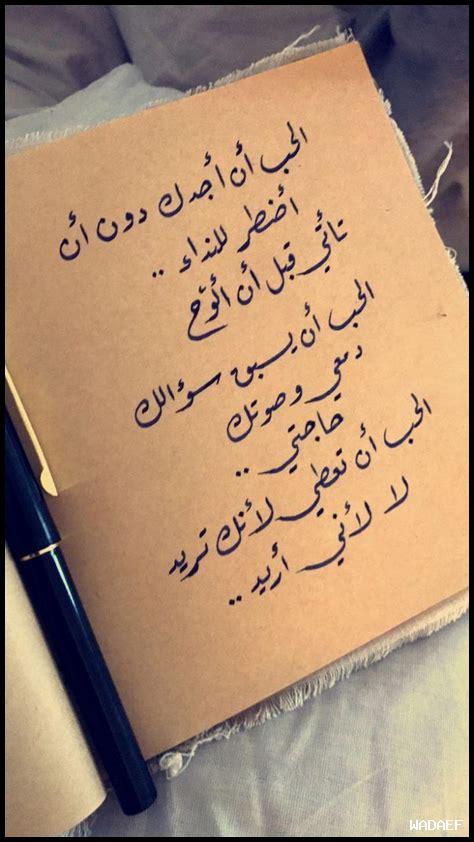 الحب أن أجدك دون أن
أضطر للنداء ..
تأتي قبل أن ألوّح
الحب أن يسبق سؤالك
دمعي وصوتك
حاجتي ..
الحب أن تعطي لأنك تريد
لا لأنني أريد ..
WADAEF